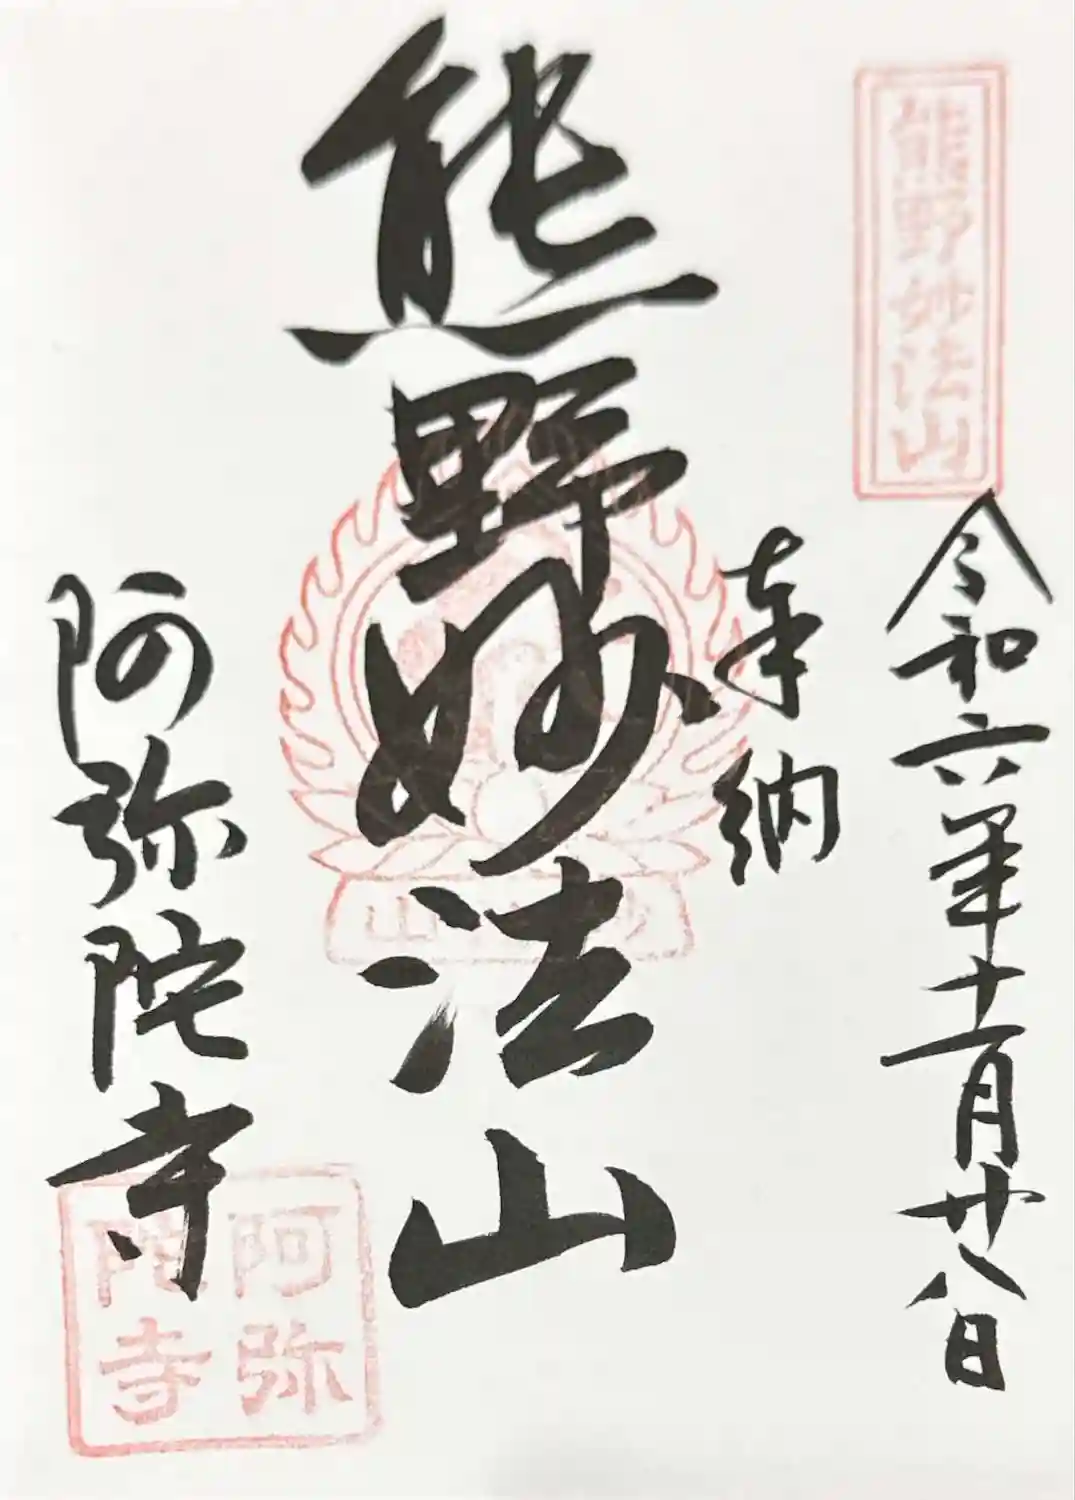 熊野妙法山
令和六年十一月廿八日
奉納
熊野妙法山
阿弥陀寺
阿弥
陀寺